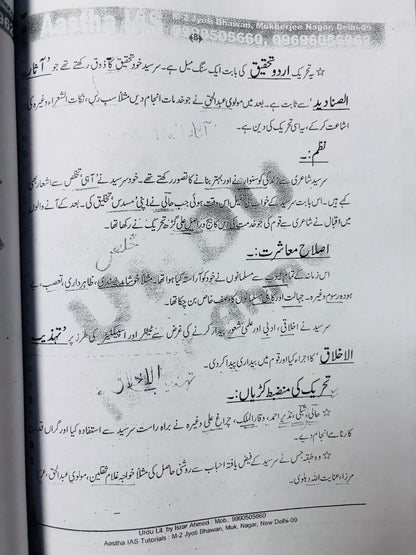 Aastha IAS
M-2 Jyoti Bhawan, Mukherjee Nagar, Delhi-09
9990505660, 0969605660
☆ یہ تحریک اردو تحقیق کی بابت ایک سنگ میل ہے۔ سرسید خود تحقیق کا ذوق رکھتے تھے جو ’آثار
الصنادید‘ سے ثابت ہے۔ بعد میں مولوی عبدالحق نے جو خدمات انجام دیں مثلاً سب رس، نکات الشعراء وغیرہ کی
اشاعت کر کے، یہ اسی تحریک کی دین ہے۔
نظم:۔
سرسید شاعری سے زندگی کو سنوارنے اور بہتر بنانے کا تصور رکھتے تھے۔ خود سرسید نے آہی تخلص سے اشعار بھی
کہے ہیں۔ اس بابت سرسید کے خواب کی تکمیل اس وقت ہوئی جب حالی نے اپنی ’مسدس‘ تخلیق کی۔ بعد کے آنے والوں
میں اقبال نے شاعری سے قوم کی جو خدمت کی اس کا بیج دراصل علی گڑھ تحریک نے رکھا تھا۔
تخلص
اصلاح معاشرت:۔
اس زمانہ کے تمام عیوب سے مسلمانوں نے خود کو آراستہ کیا ہوا تھا۔ مثلاً خوشامد پسندی، ظاہر داری، تعصب، بے
ہودہ رسوم وغیرہ۔ جہالت اور کاہلی مسلمانوں کا وصف خاص بن چکا تھا۔
سرسید نے اخلاقی، ادبی اور علمی شعور بیدار کرنے کی غرض سے ٹیٹلر اور اسپکٹیٹر کی طرز پر ’تہذیب
الاخلاق‘ کا اجراء کیا اور قوم میں بیداری پیدا کر دی۔
تہذیب الاخلاق
تحریک کی منضبط کڑیاں:۔
☆ حالی، شبلی، نذیر احمد، وقار الملک، چراغ علی وغیرہ نے براہ راست سرسید سے استفادہ کیا اور گراں قدر
کارنامے انجام دیے۔
☆ وہ طبقہ جس نے سرسید کے فیض یافتہ احباب سے روشنی حاصل کی مثلاً خواجہ غلام ثقلین، مولوی عبدالحق، عزیز
مرزا، عنایت اللہ دہلوی۔
Urdu Lit. by Israr Ahmed : Mob.: 9990505660
Aastha IAS Tutorials : M-2 Jyoti Bhawan, Muk. Nagar, New Delhi-09